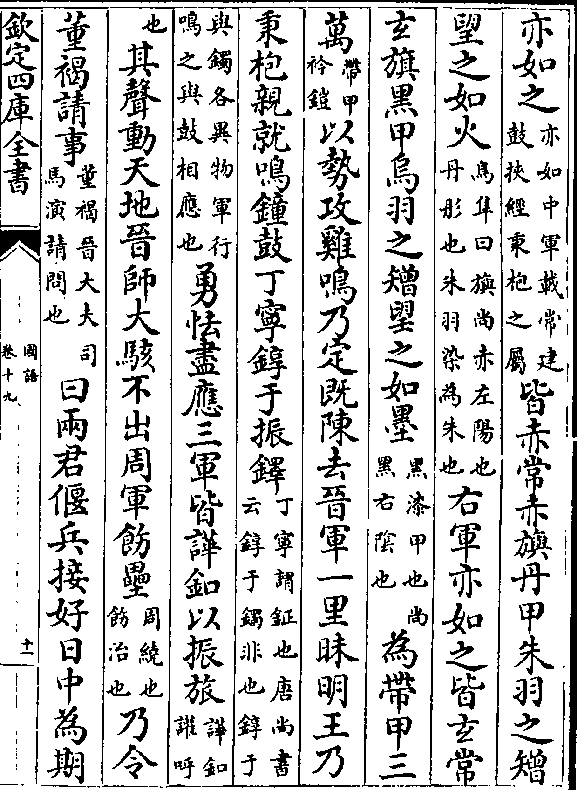 亦如之亦如中軍載常建鼓挾經秉枹之屬皆赤常赤旟丹甲朱羽之矰
望之如火鳥隼曰旟尚赤左陽也丹彤也朱羽染為朱也右軍亦如之皆玄常
玄旗黑甲烏羽之矰望之如墨黑漆甲也尚黑右陰也為帶甲三
萬帶甲衿鎧以勢攻雞鳴乃定既陳去晉軍一里昧明王乃
秉枹親就鳴鐘鼓丁寧錞于振鐸丁寧謂鉦也唐尚書云錞于鐲非也錞于
與鐲各異物軍行鳴之與鼓相應也勇怯盡應三軍皆譁釦以振旅譁釦讙呼
也其聲動天地晉師大駭不出周軍飭壘周繞也飭治也乃令
董褐請事董褐晉大夫司馬演請問也曰兩君偃兵接好日中為期
欽定四庫全書
國語
卷十九
十一